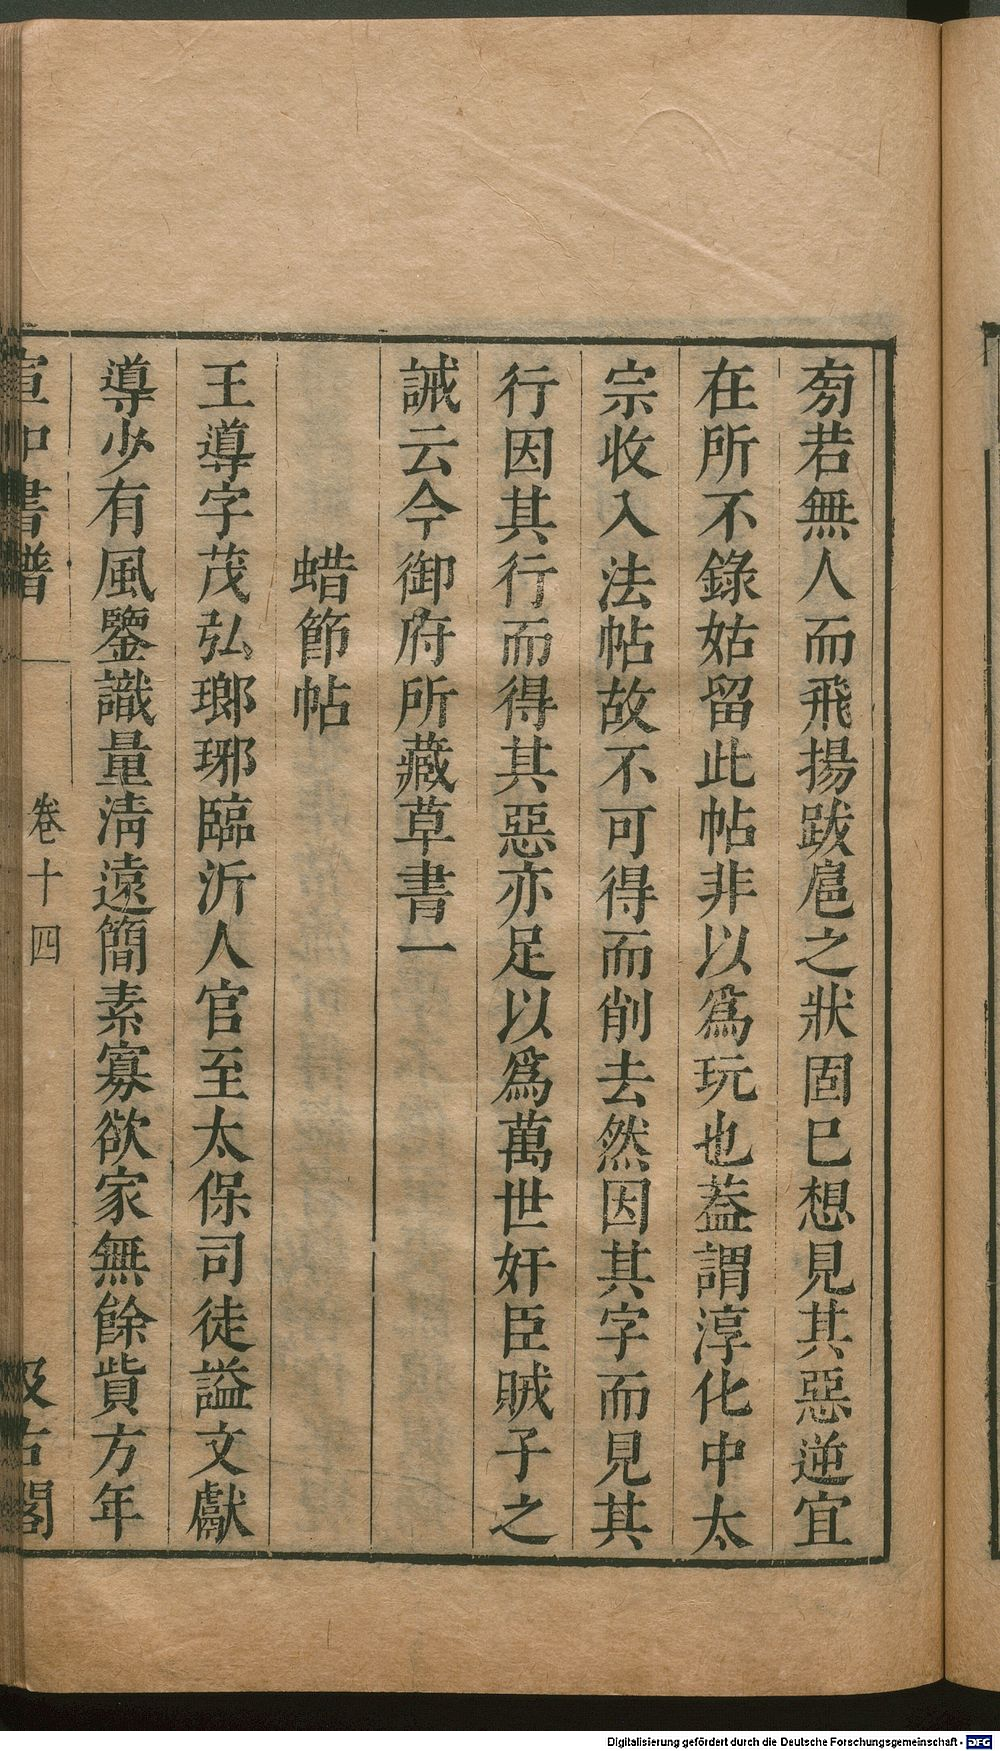 㫄若無人而飛揚跋扈之狀固已想見其惡逆宜
在所不錄姑留此帖非以爲玩也葢謂淳化中太
宗收入法帖故不可得而削去然因其字而見其
行因其行而得其惡亦足以爲萬世奸臣賊子之
誡云今御府所藏草書一
蜡節帖
王導字茂弘瑯琊臨沂人官至太保司徒謚文獻
導少有風鑒識量淸遠簡素寡欲家無餘貲方年
宣和書譜 卷十四 汲古閣
Digitalisierung gefördert durch die Deutsche Forschungsgemeinschaft - DFG